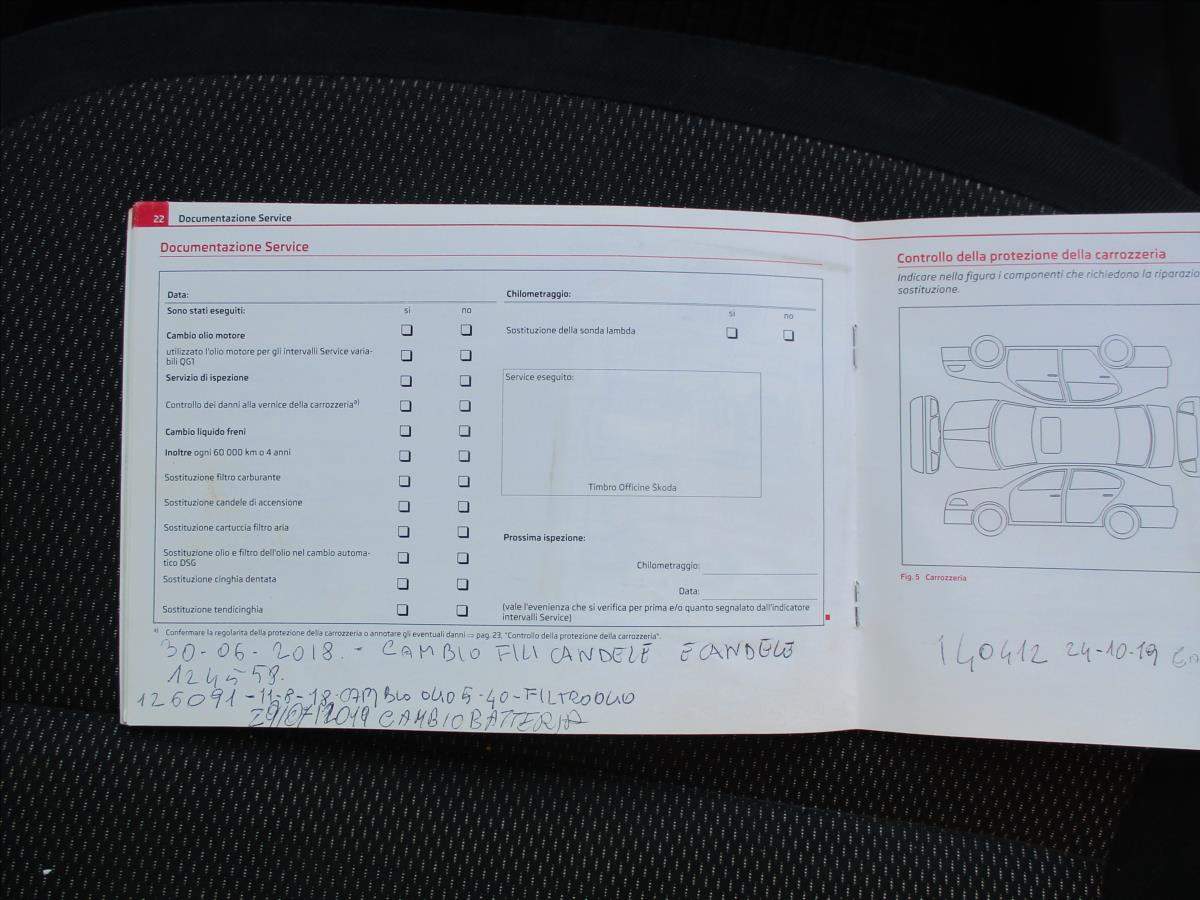 22 Documentazione Service
Documentazione Service
Data:
Chilometraggio:
Sono stati eseguiti: si no
Cambio olio motore
utilizzato l'olio motore per gli intervalli Service varia-
bili QG1
Servizio di ispezione
Controllo dei danni alla vernice della carrozzeria a)
Cambio liquido freni
Inoltre ogni 60 000 km o 4 anni
Sostituzione filtro carburante
Sostituzione candele di accensione
Sostituzione cartuccia filtro aria
Sostituzione olio e filtro dell'olio nel cambio automa-
tico DSG
Sostituzione cinghia dentata
Sostituzione tendicinghia
si no
Sostituzione della sonda lambda
Service eseguito:
Timbro Officine Škoda
Prossima ispezione:
Chilometraggio:
Data:
(vale l'evenienza che si verifica per prima e/o quanto segnalato dall'indicatore
intervalli Service)
a) Confermare la regolarità della protezione della carrozzeria o annotare gli eventuali danni ⇒ pag. 23, "Controllo della protezione della carrozzeria".
30-06-2018.- CAMBIO FILI CANDELE E CANDELE
124558.
126091 -11-8-18. CAMBIO OLIO 5-40-FILTRO OLIO
29/07/2019 CAMBIO BATTERIA
Controllo della protezione della carrozzeria
Indicare nella figura i componenti che richiedono la riparazio
sostituzione.
Fig. 5 Carrozzeria
140412 24-10-19